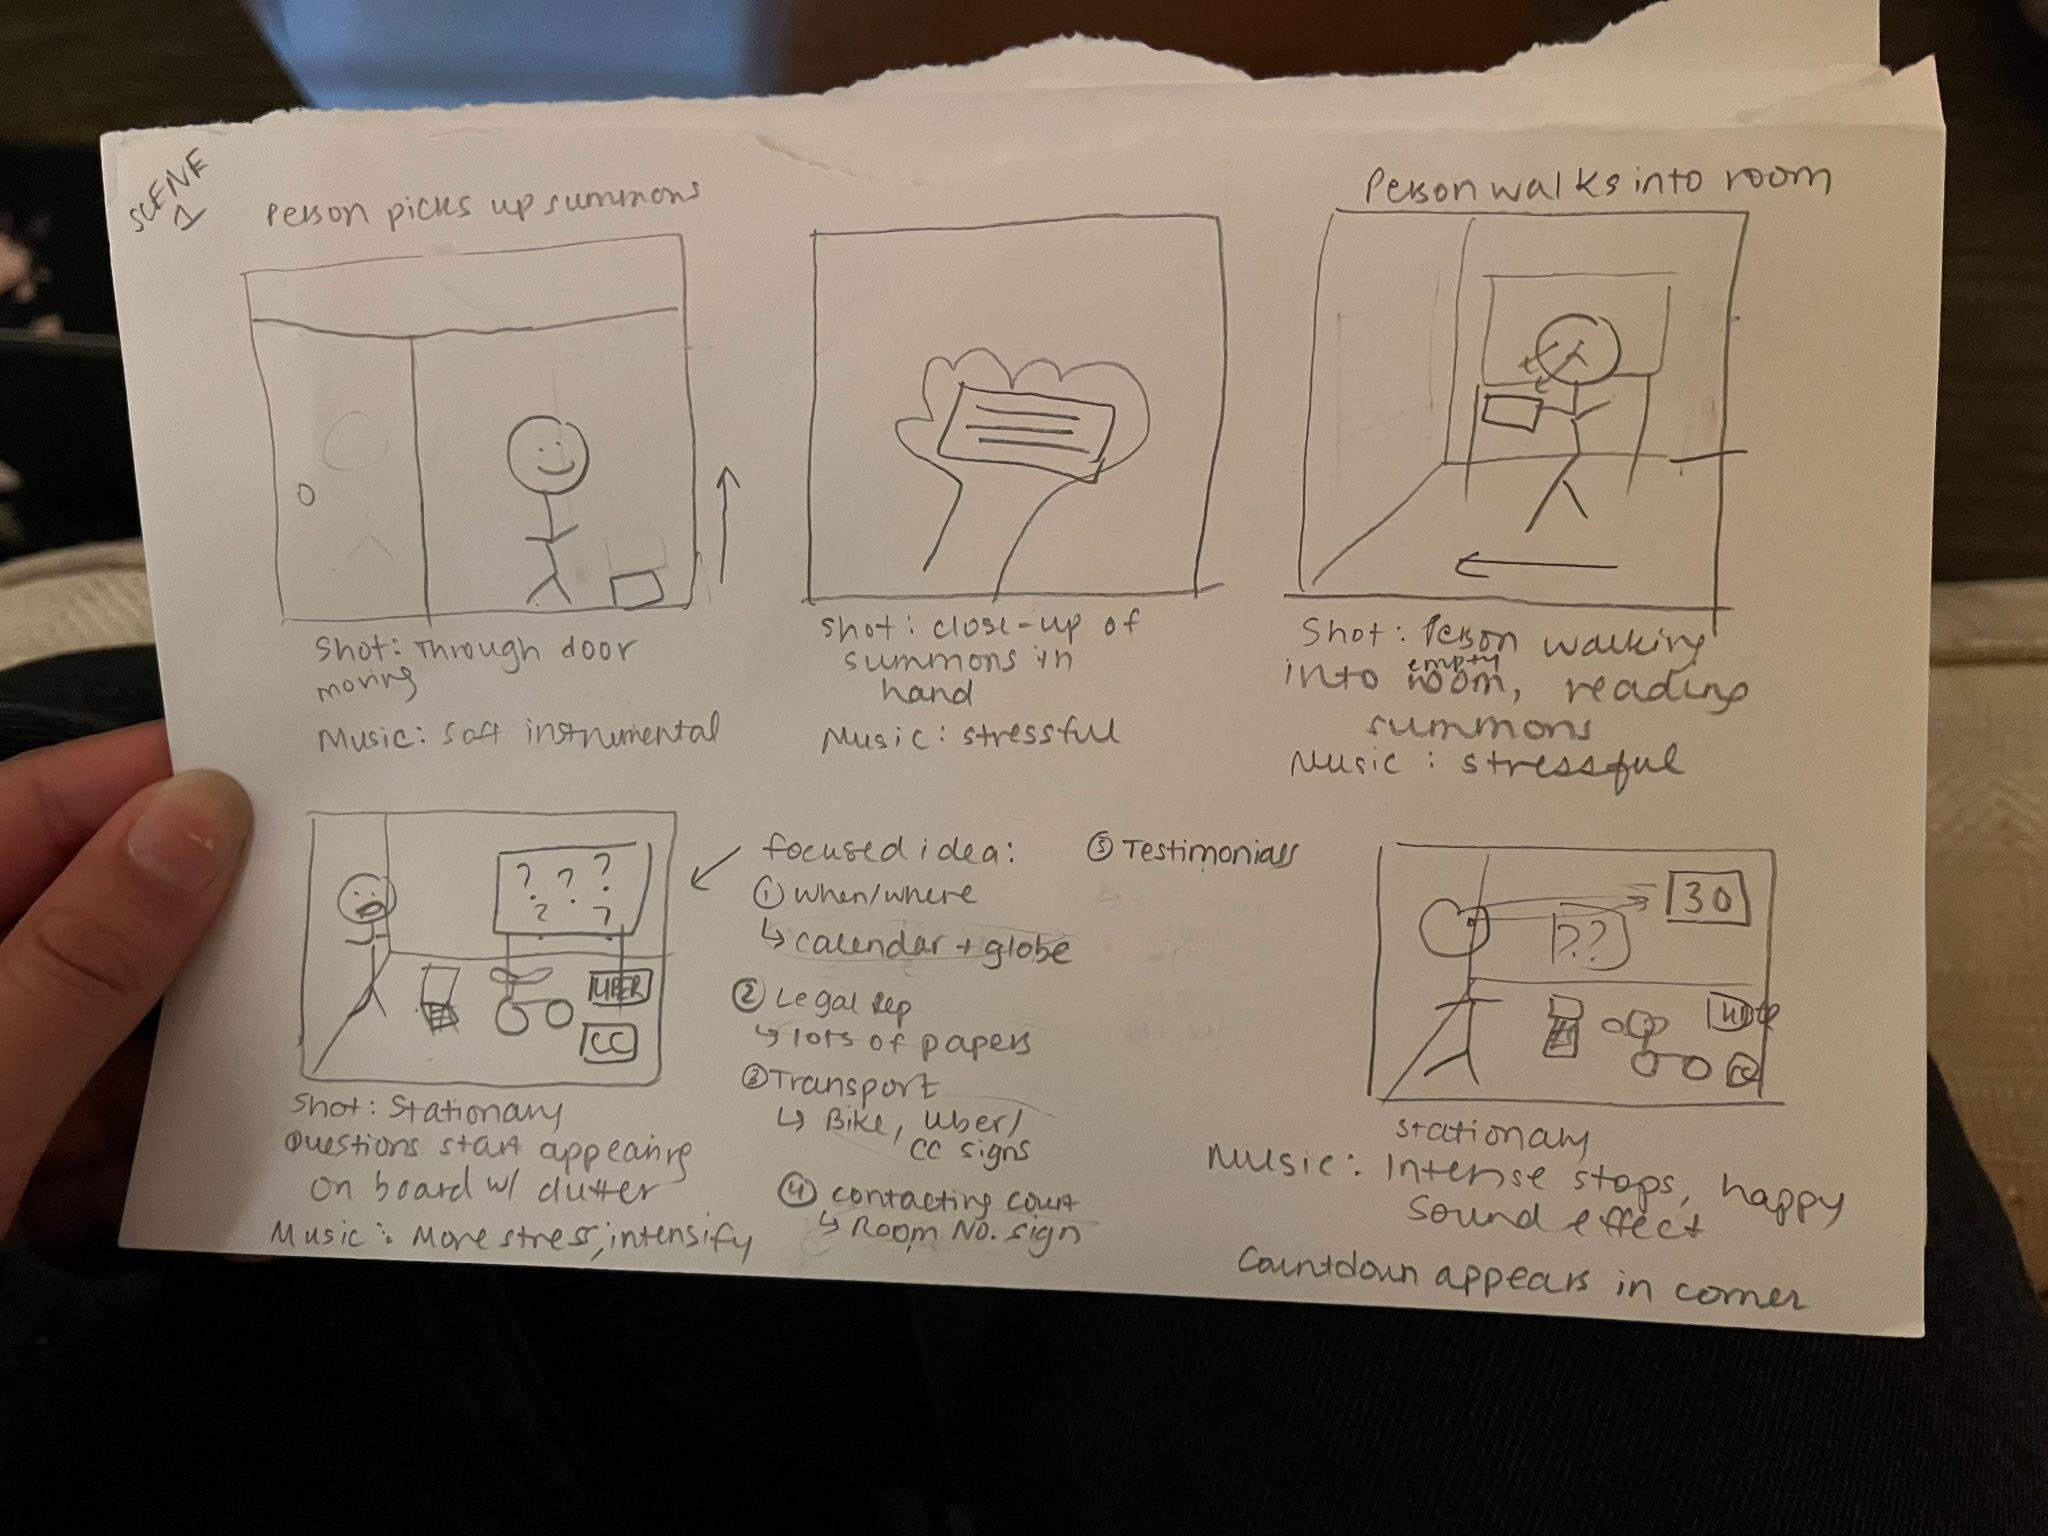 SCENE
1
Person picks up summons
Shot: Through door
moving
Music: soft instrumental
Shot: close-up of
summons in
hand
Music: stressful
Person walks into room
Shot: Person walking
into empty room, reading
summons
Music: stressful
? ? ?
? ?
UBER
CC
Shot: Stationary
Questions start appearing
on board w/ clutter
Music: More stress, intensify
focused idea:
① When/where
↳ calendar + globe
② Legal rep
↳ lots of papers
③ Transport
↳ Bike, Uber/
CC signs
④ contacting court
↳ Room No. sign
⑤ Testimonials
30
??
CC
stationary
Music: Intense stops, happy
sound effect
Countdown appears in corner